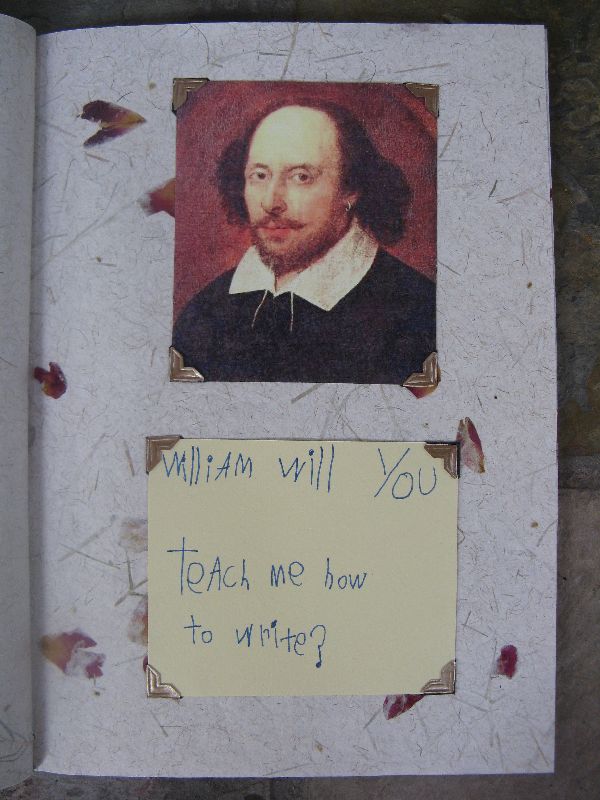 William will YOU
teAch me how
to write?